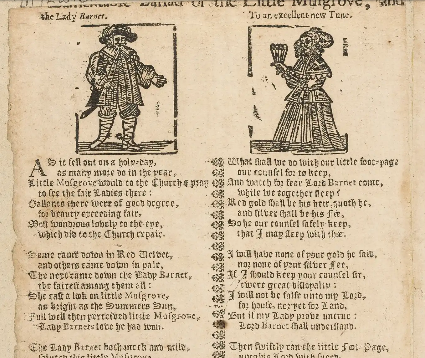 Lamentable Ballad of the Little Musgrove, and
the Lady Barnet.
To an excellent new Tune.
AS it fell out on a holy-day,
as many more do in the year,
Little Musgrove would to the Church & pray
to see the fair Ladies there:
Gallants there were of good degree,
for beauty exceeding fair,
Most wondrous lovely to the eye,
which did to the Church repair.
Some came down in Red Velvet,
and others came down in pale,
The next came down the Lady Barnet,
the fairest among them all:
She cast a look on little Musgrove,
as bright as the Summers Sun,
Full well then perceived little Musgrove,
Lady Barnets love he had won.
The Lady Barnet both meek and mild,
saluted this little Musgrove
What shall we do with our little foot-page
our counsel for to keep,
And watch for fear Lord Barnet come,
while we together sleep?
Red gold shall be his heir, quoth he,
and silver shall be his Fee,
So he our counsel safely keep,
that I may sleep with thee.
I will have none of your gold he said,
nor none of your silver Fee,
If I should keep your counsel sir,
twere great disloyalty:
I will not be false unto my Lord,
for house nor yet for Land,
But if my Lady prove untrue:
Lord Barnet shall understand.
Then swiftly ran the little Foot-Page,
unto his Lord with speed